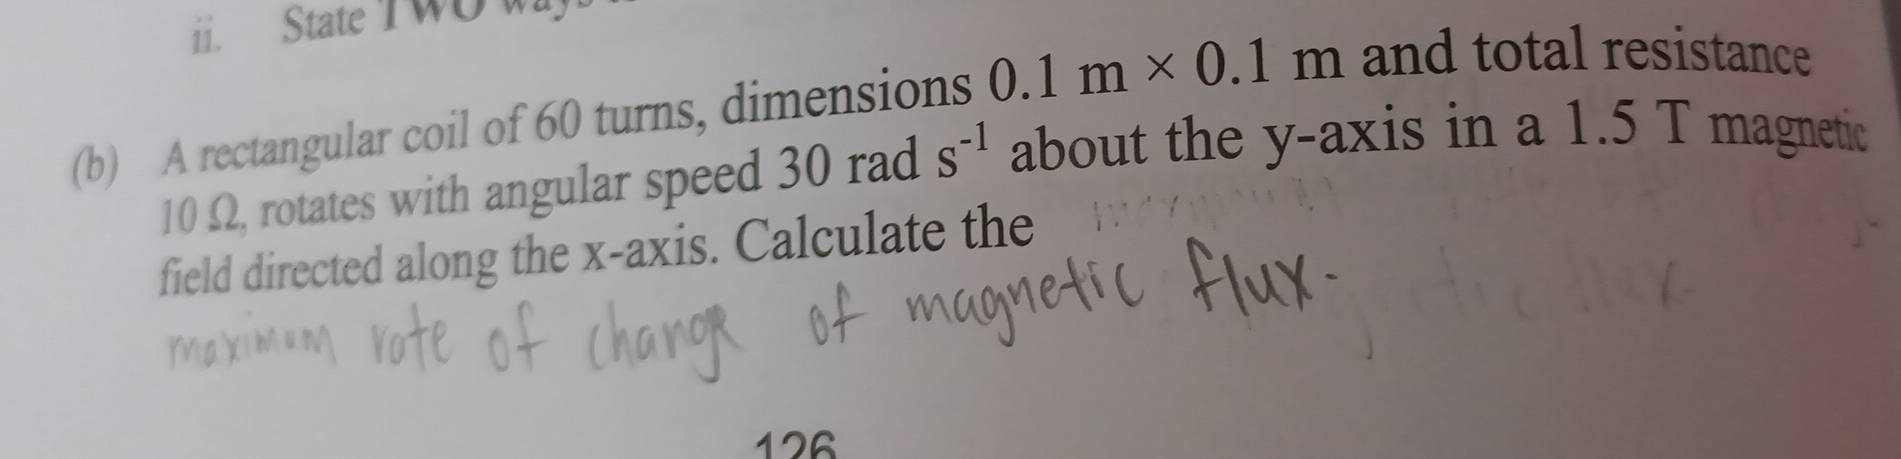 ii. State TWO ways
(b) A rectangular coil of 60 turns, dimensions 0.1 m × 0.1 m and total resistance
10 Ω, rotates with angular speed 30 rad s⁻¹ about the y-axis in a 1.5 T magnetic
field directed along the x-axis. Calculate the
maximum rate of change of magnetic flux.
126